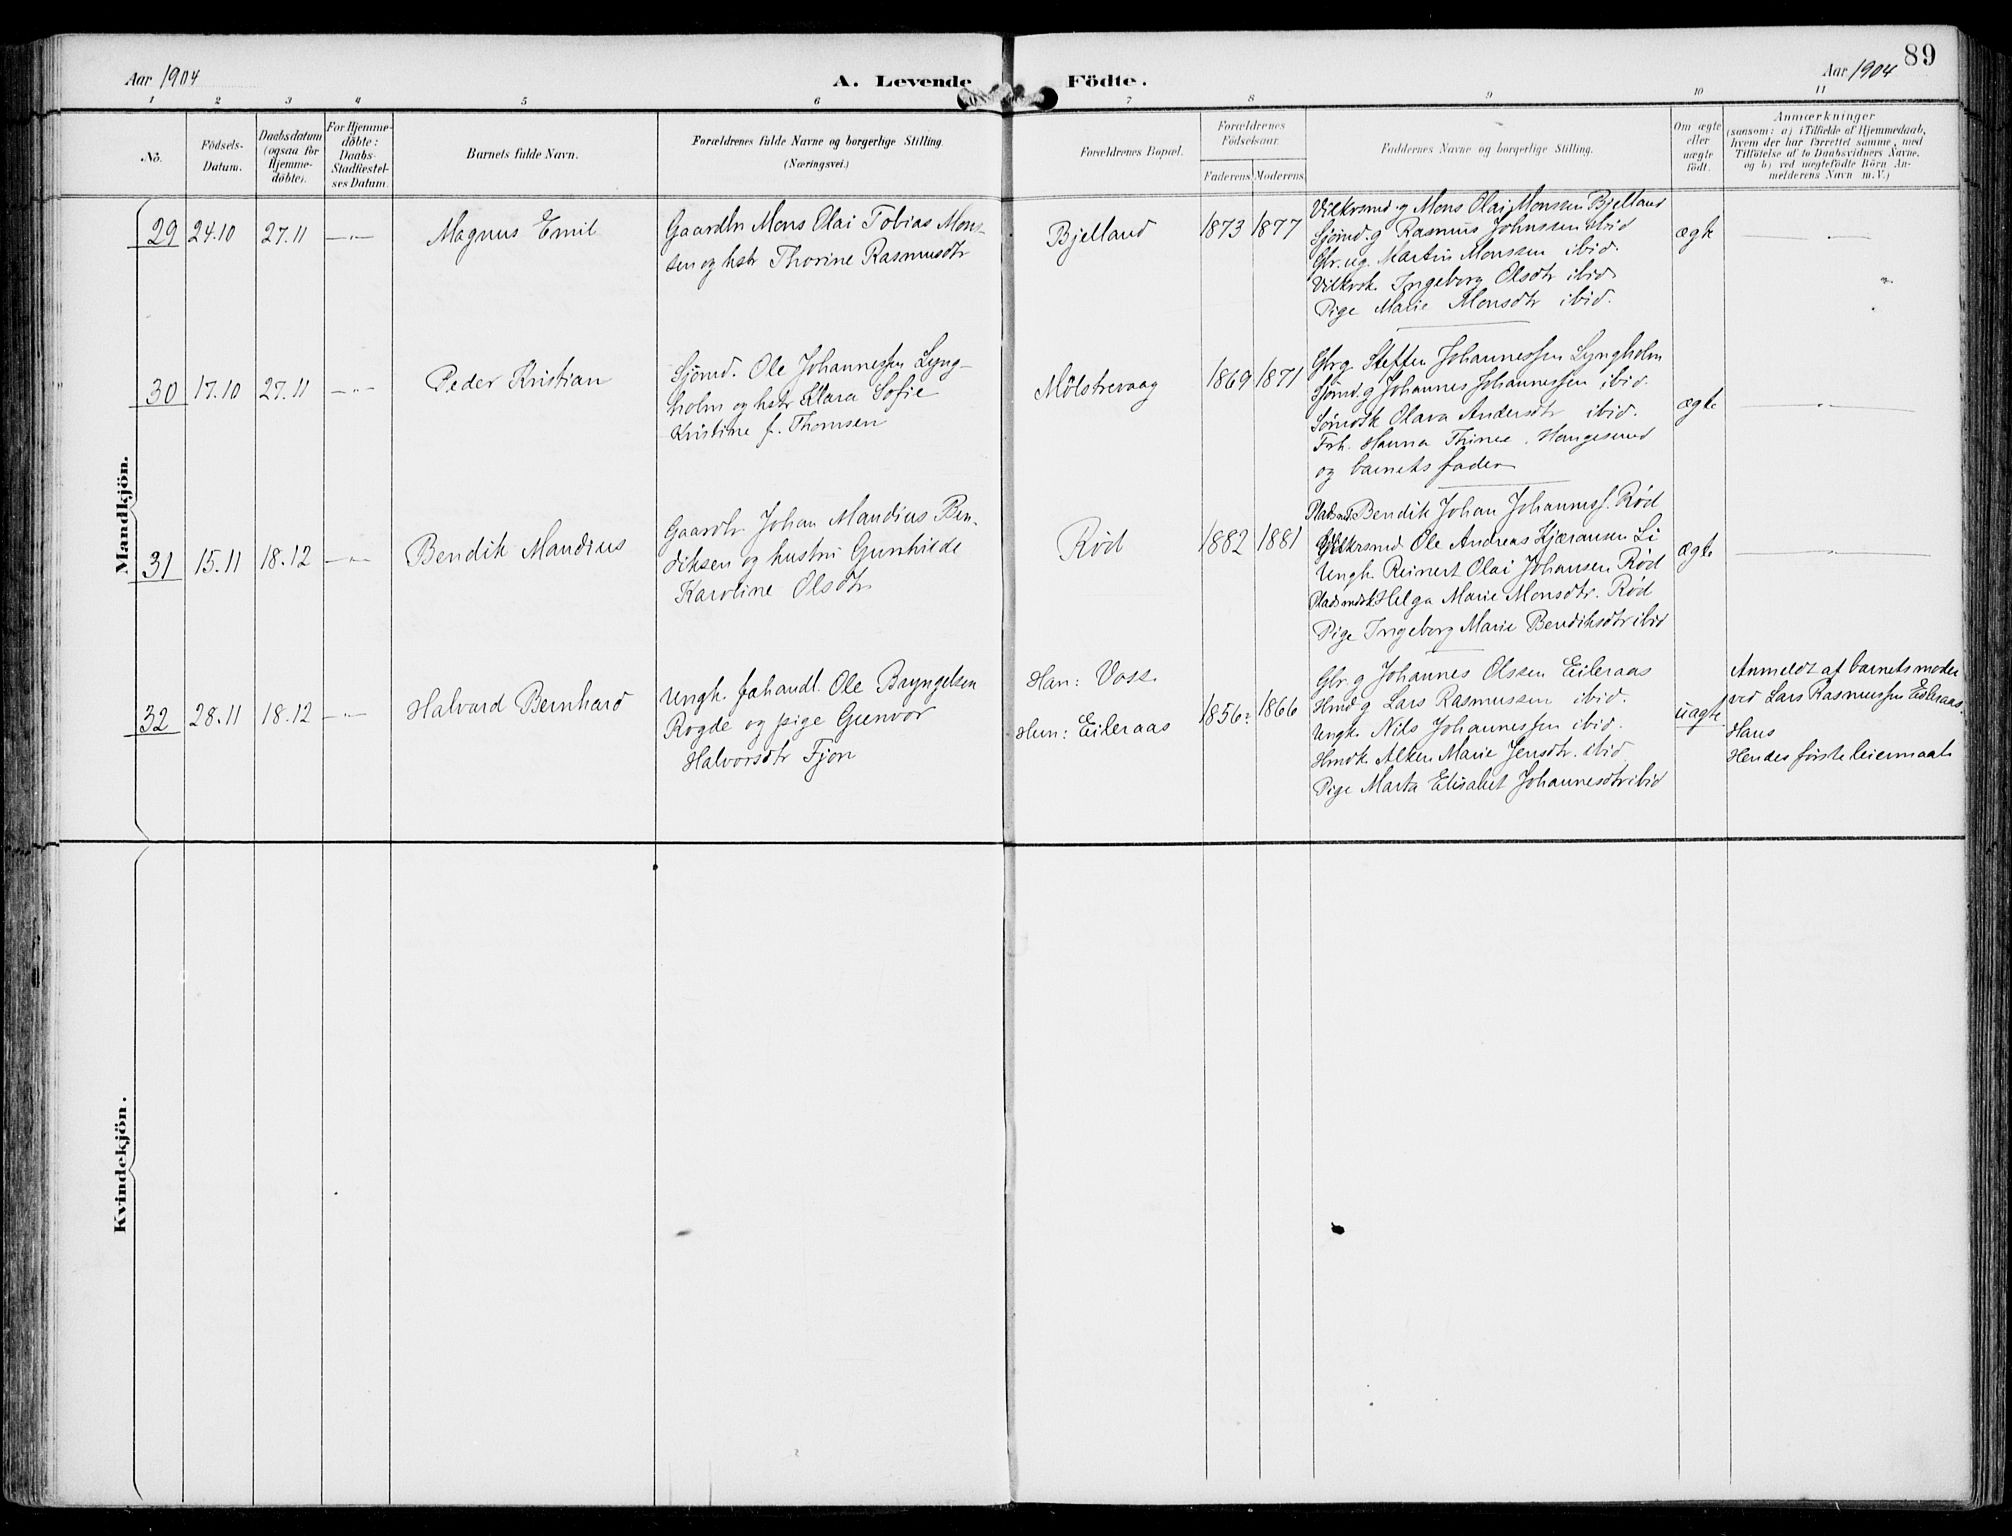 Aar 1904
A. Levende Födte.
Aar 1904
89
1 2 3 4 5 6 7 8 9 10 11
No.
Födsels-
Datum.
Daabsdatum
(ogsaa for
Hjemme-
döbte).
For Hjemme-
döbte:
Daabs-
Stadfæstel-
ses Datum.
Barnets fulde Navn.
Forældrenes fulde Navne og borgerlige Stilling
(Næringsvei.)
Forældrenes Bopæl.
Forældrenes
Födselsaar.
Faderens Moderens
Faddernes Navne og borgerlige Stilling.
Om ægte
eller
uægte
födt.
Anmærkninger
(saasom: a) i Tilfælde af Hjemmedaab,
hvem der har forrettet samme, med
Tilföielse af to Daabsvidners Navne,
og b) ved uegtefödte Börn An-
melderens Navn m. V.)
Mandkjön.
29
24.10
27.11
—„—
Magnus Emil
Gaardbr Mons Olai Tobias Mon-
sen og hstr Thorine Rasmusdtr
Bjelland
1873 1877
Vilkrsmd. g Mons Olai Monsen Bjelland
Sjømd. g Rasmus Johnssen ibid
Gbr. ug. Martin Monssen ibid.
Vilkrsk. Ingeborg Olsdtr ibid
Pige Marie Monsdtr ibid.
ægte
—„—
30
17.10
27.11
—„—
Peder Kristian
Sjømd. Ole Johannessen Lyng-
holm og hstr Klara Sofie
Kristine f. Thomsen
Mølstrevaag
1869 1871
Gbrg Steffen Johannessen Lyngholm
Sjømd. g Johannes Johannessen ibid.
Sømdsk Olava Andersdtr ibid.
Frk. Hanna Haugesund
og barnets fader
ægte
—„—
31
15.11
18.12
—„—
Bendik Mandius
Gaardbr. Johan Mandius Ben-
diksen og hustru Gunhilde
Karoline Olsdtr
Rød
1882 1881
Pladsmd. Bendik Johan Johanness. Rød
Vilkrsmd Ole Andreas Kjæransen Li
Ungk. Reinert Olai Johansen Rød
Pladsmdsk Helga Marie Monsdtr. Rød
Pige Ingeborg Marie Bendiksdtr ibid
ægte
—„—
32
28.11
18.12
—„—
Halvard Bernhard
Ungk. fæhandl. Ole Bryngelsen
Rogde og pige Gunvor
Halvorsdtr Fjon
Han: Voss.
Hun: Eileraas
1856: 1866
Gbr g Johannes Olssen Eileraas
Hmd g Lars Rasmussen ibid.
Ungk. Nils Johannessen ibid.
Hmdk. Alken Marie Jensdtr. ibid
Pige Marta Elisabet Johannesdtr ibid
uægte
Anmeldt af barnets moder
ved Lars Rasmussen Eileraas.
Hans
Hendes første leiermaal
Kvindekjön.